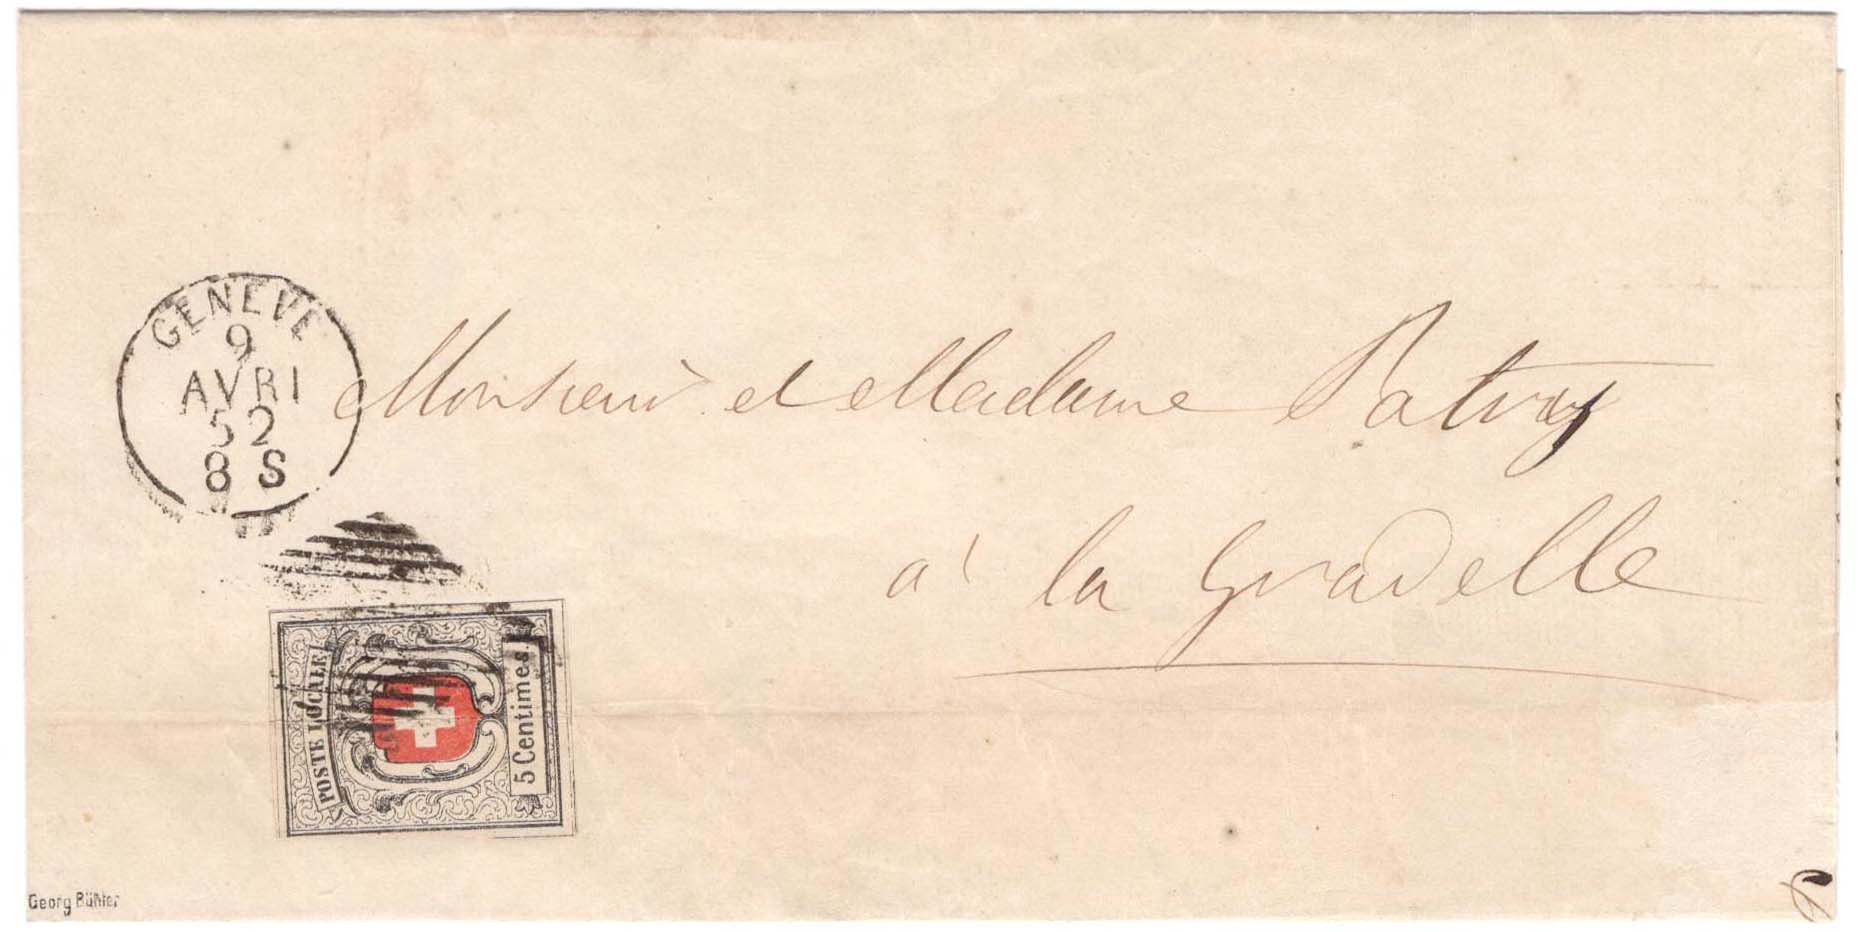 GENEVE
9
AVRI
52
8 S
Monsieur et Madame Patry
à la Gradelle
POSTE LOCALE
5 Centimes.
Georg Bühler